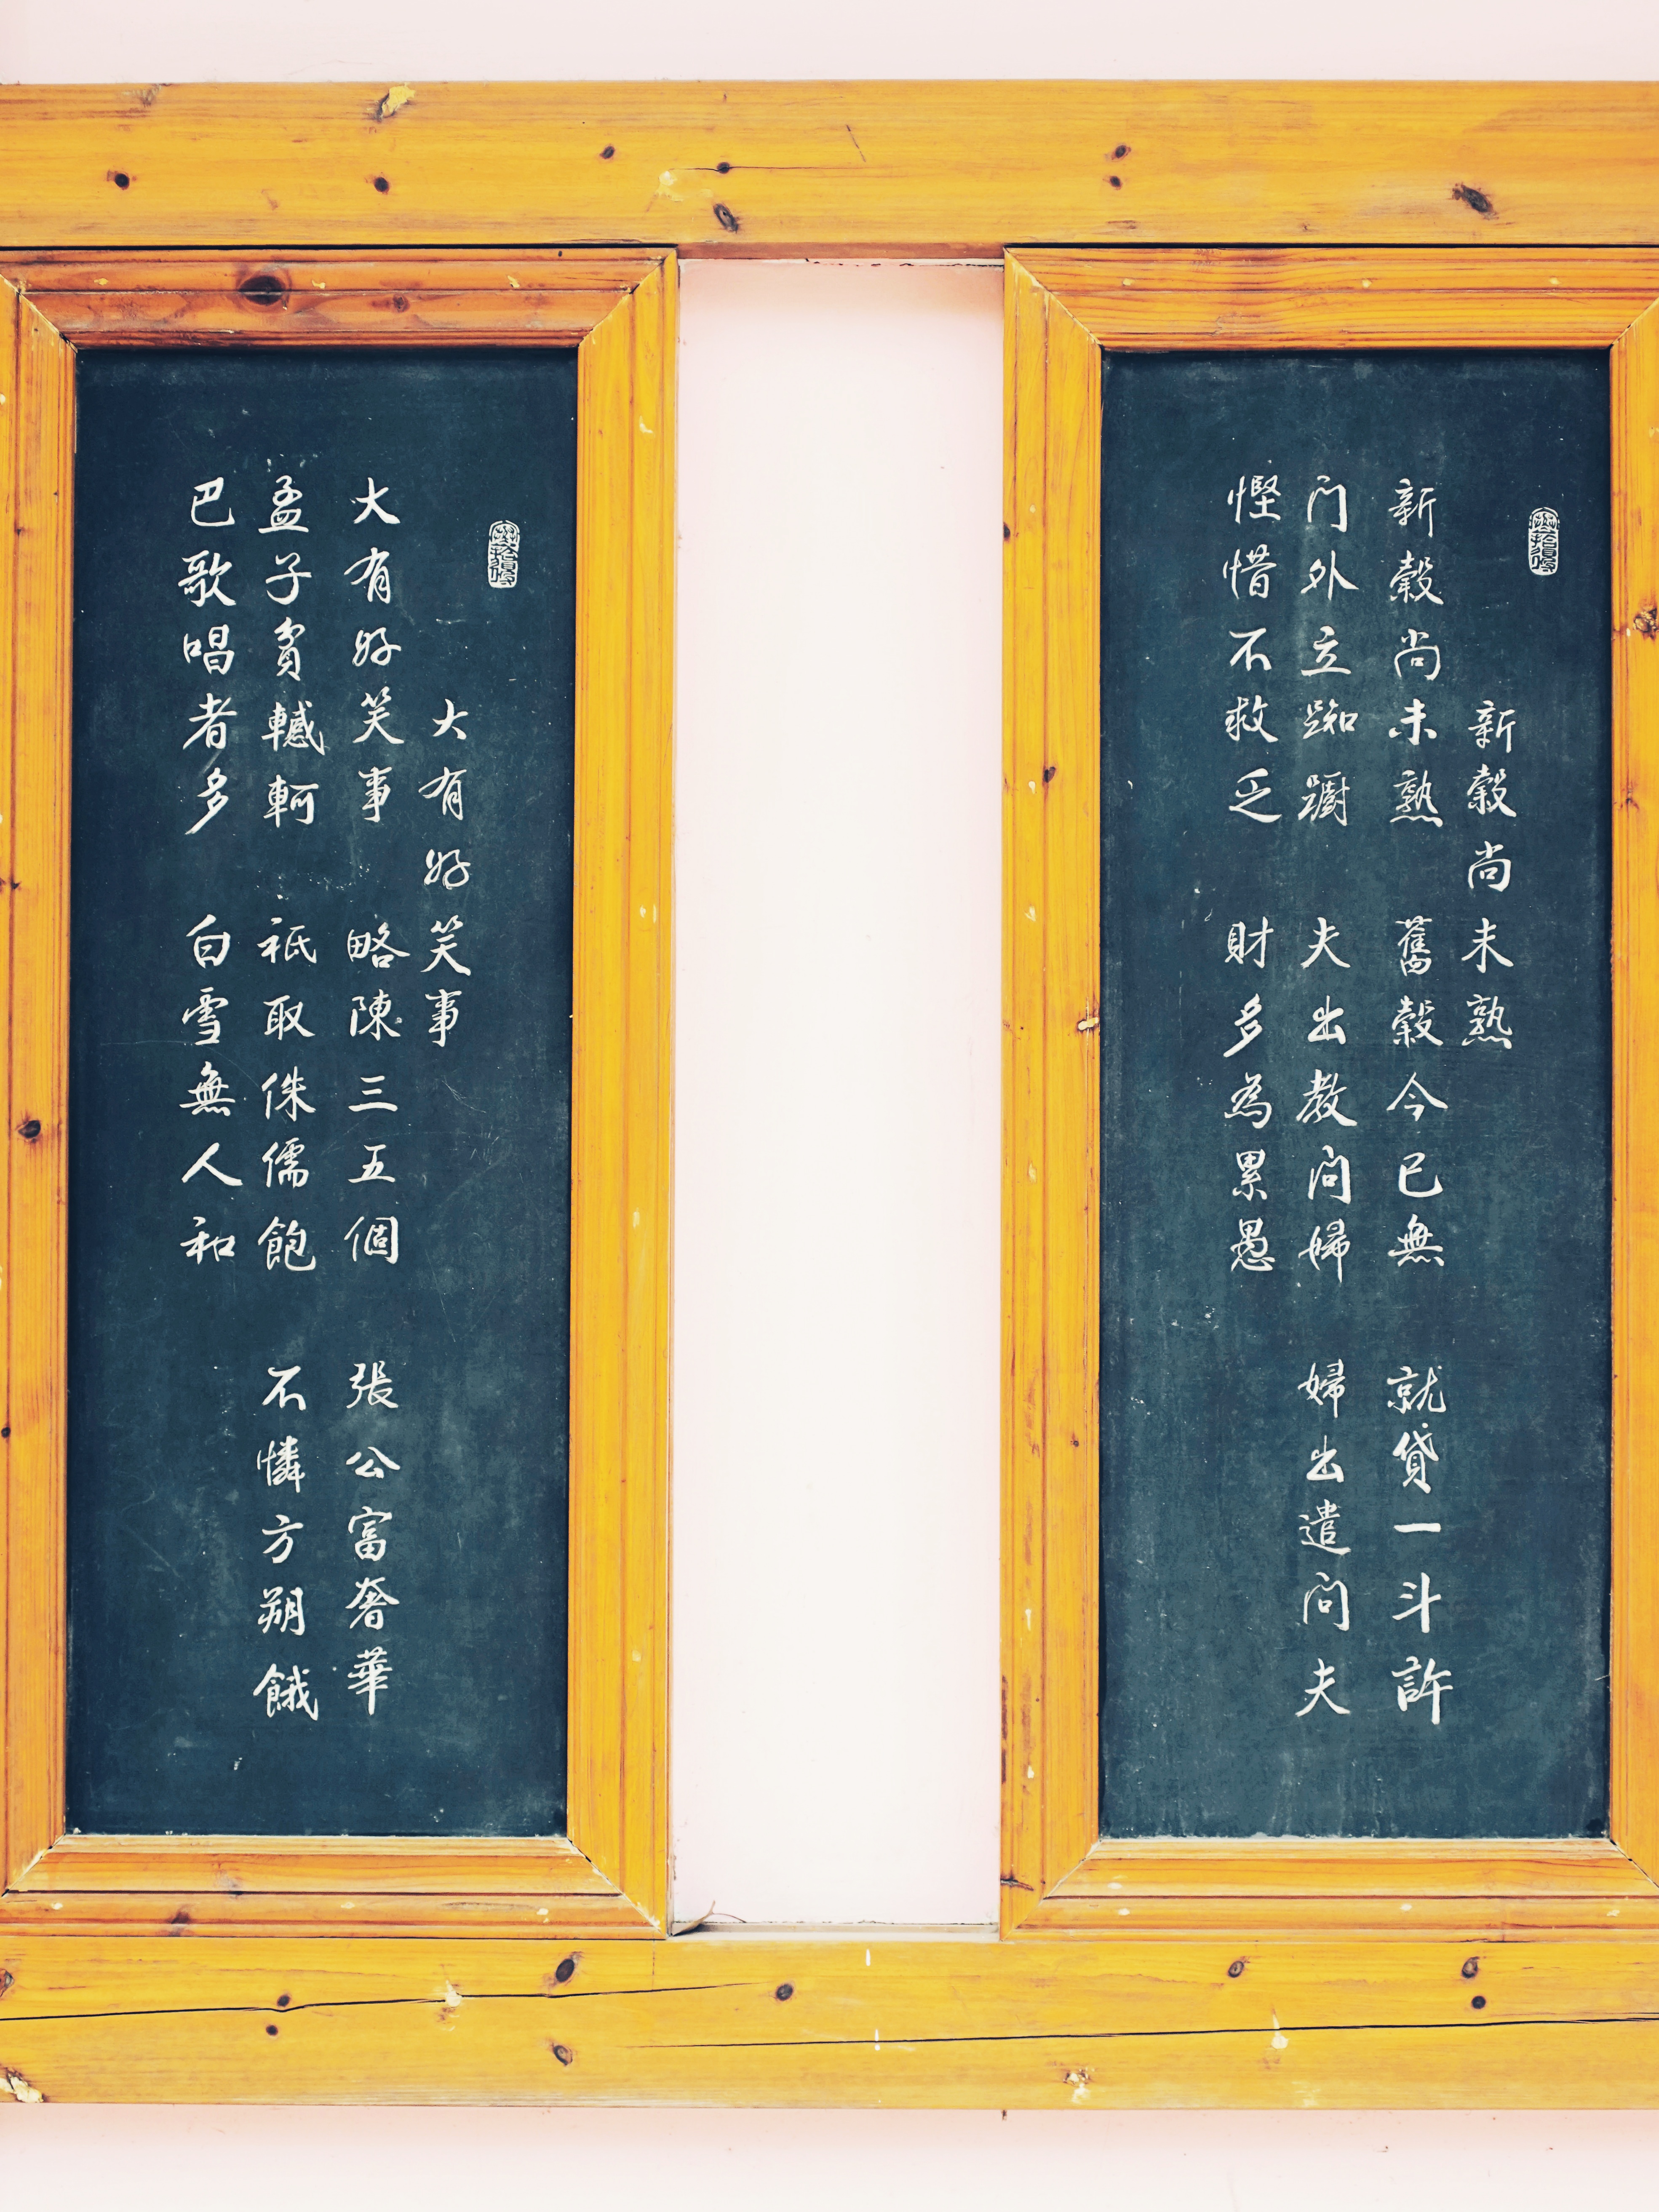 新穀尚未熟
新穀尚未熟 舊穀今已無 就貸一斗許
门外立踟躕 夫出教问婦 婦出遣问夫
慳惜不救乏 財多為累愚
大有好笑事
大有好笑事 略陳三五個 張公富奢華
孟子貧轗軻 祇取侏儒飽 不憐方朔餓
巴歌唱者多 白雪無人和